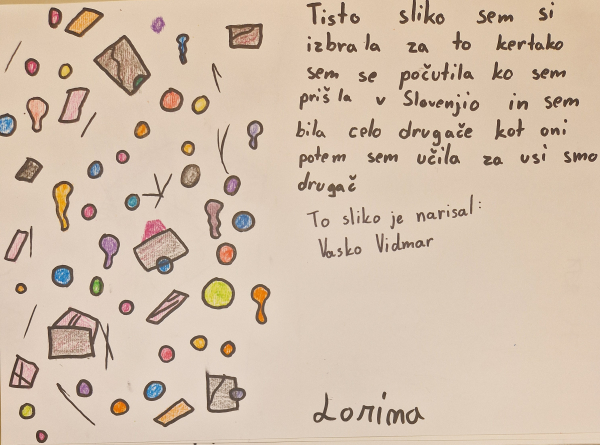 Tisto sliko sem si
izbrala za to kertako
sem se počutila ko sem
prišla v Slovenjio in sem
bila celo drugače kot oni
potem sem učila za usi smo
drugač
To sliko je narisal:
Vasko Vidmar
Lorina